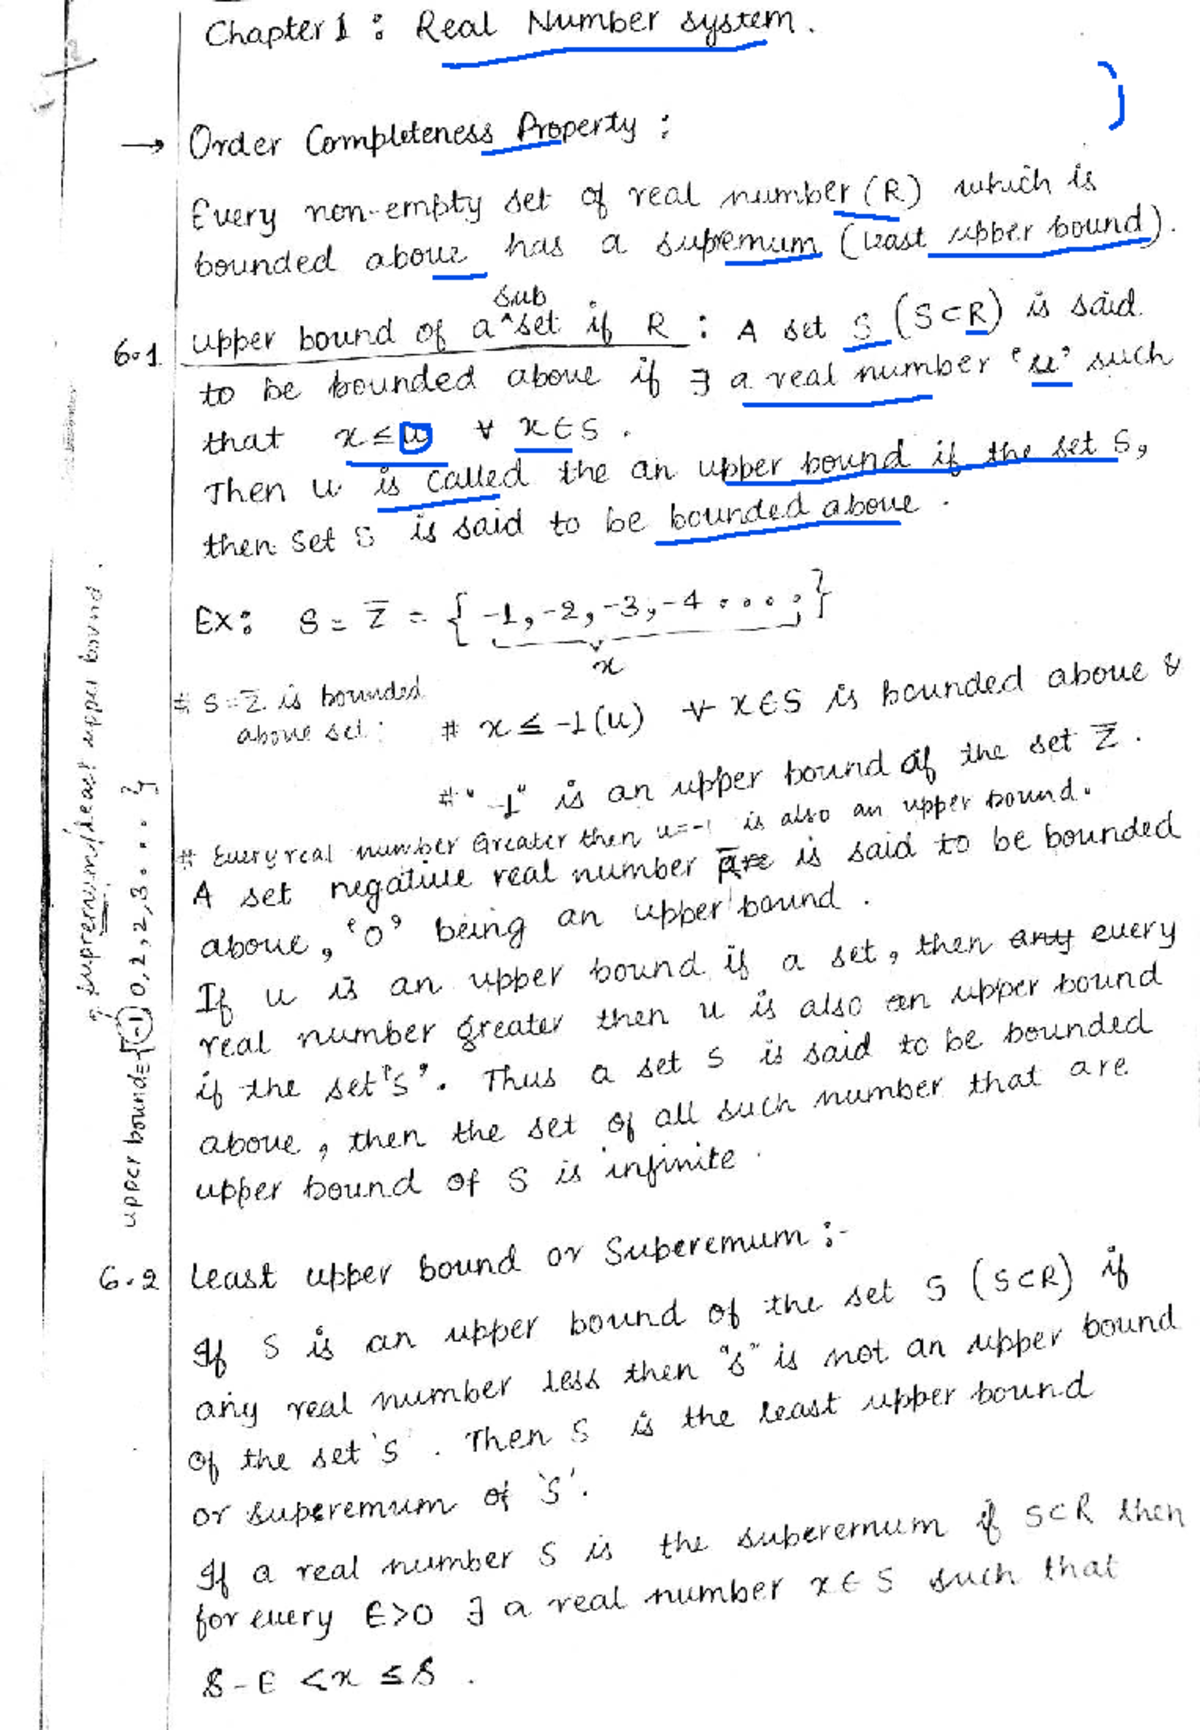 Chapter 1 : Real Number system.
→ Order Completeness Property :
Every non-empty set of real number (R) which is
bounded above has a supremum (least upper bound).
sub
6.1 upper bound of a ^ set if R : A set S (S⊂R) is said
to be bounded above if ∃ a real number 'u' such
that x≤u ∀ x∈S .
Then u is called the an upper bound if the set S,
then set S is said to be bounded above .
Ex: S = Z̅ = { -1, -2, -3, -4 . . . . ; }
x
# S=Z̅ is bounded
above set:
# x ≤ -1(u) ∀ x∈S is bounded above &
# "-1" is an upper bound of the set Z̅ .
# Every real number Greater then u=-1 is also an upper bound.
A set negative real number are is said to be bounded
above, '0' being an upper bound .
If u is an upper bound if a set, then any every
real number greater then u is also an upper bound
if the set 'S'. Thus a set S is said to be bounded
above, then the set of all such number that are
upper bound of S is infinite .
upper bound={-1, 0, 2, 2, 3. . . . }
supremum/least upper bound .
6.2 Least upper bound or Superemum :-
If S is an upper bound of the set S (S⊂R) if
any real number less then "s" is not an upper bound
of the set 'S' . Then S is the least upper bound
or superemum of 'S'.
If a real number S is the superemum if S⊂R then
for every ∈>0 ∃ a real number x∈S such that
S-∈ <x ≤S .